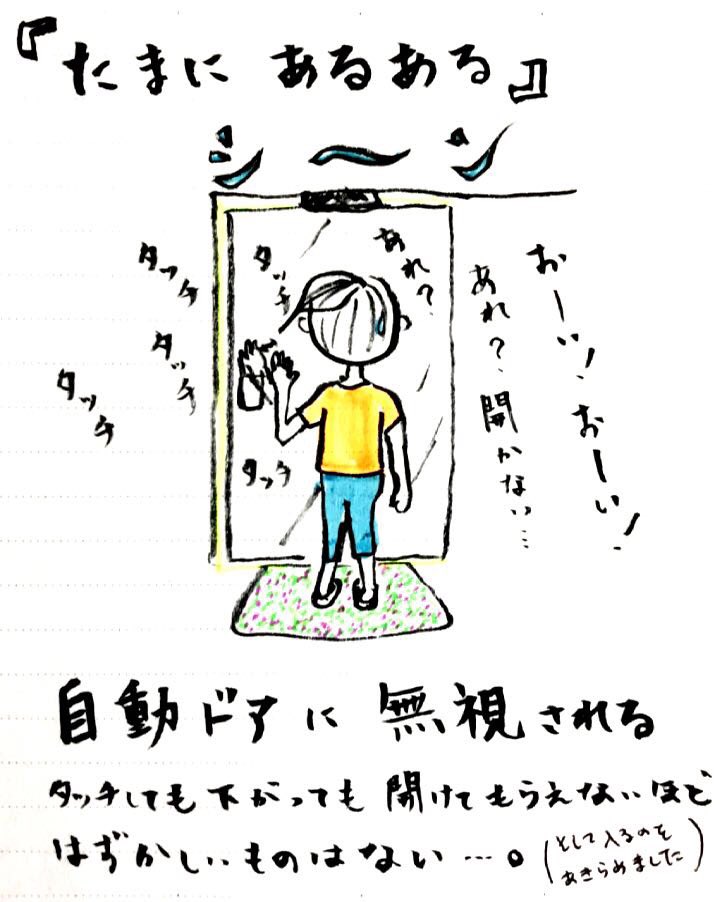 『たまに あるある』
シ〜ン
タッチ
タッチ
タッチ
タッチ
タッチ
あれ?
あれ?開かない…
おーい!おーい!
自動ドアに無視される
タッチしても下がっても開けてもらえないほど
はずかしいものはない…。(として入るのを
あきらめました)